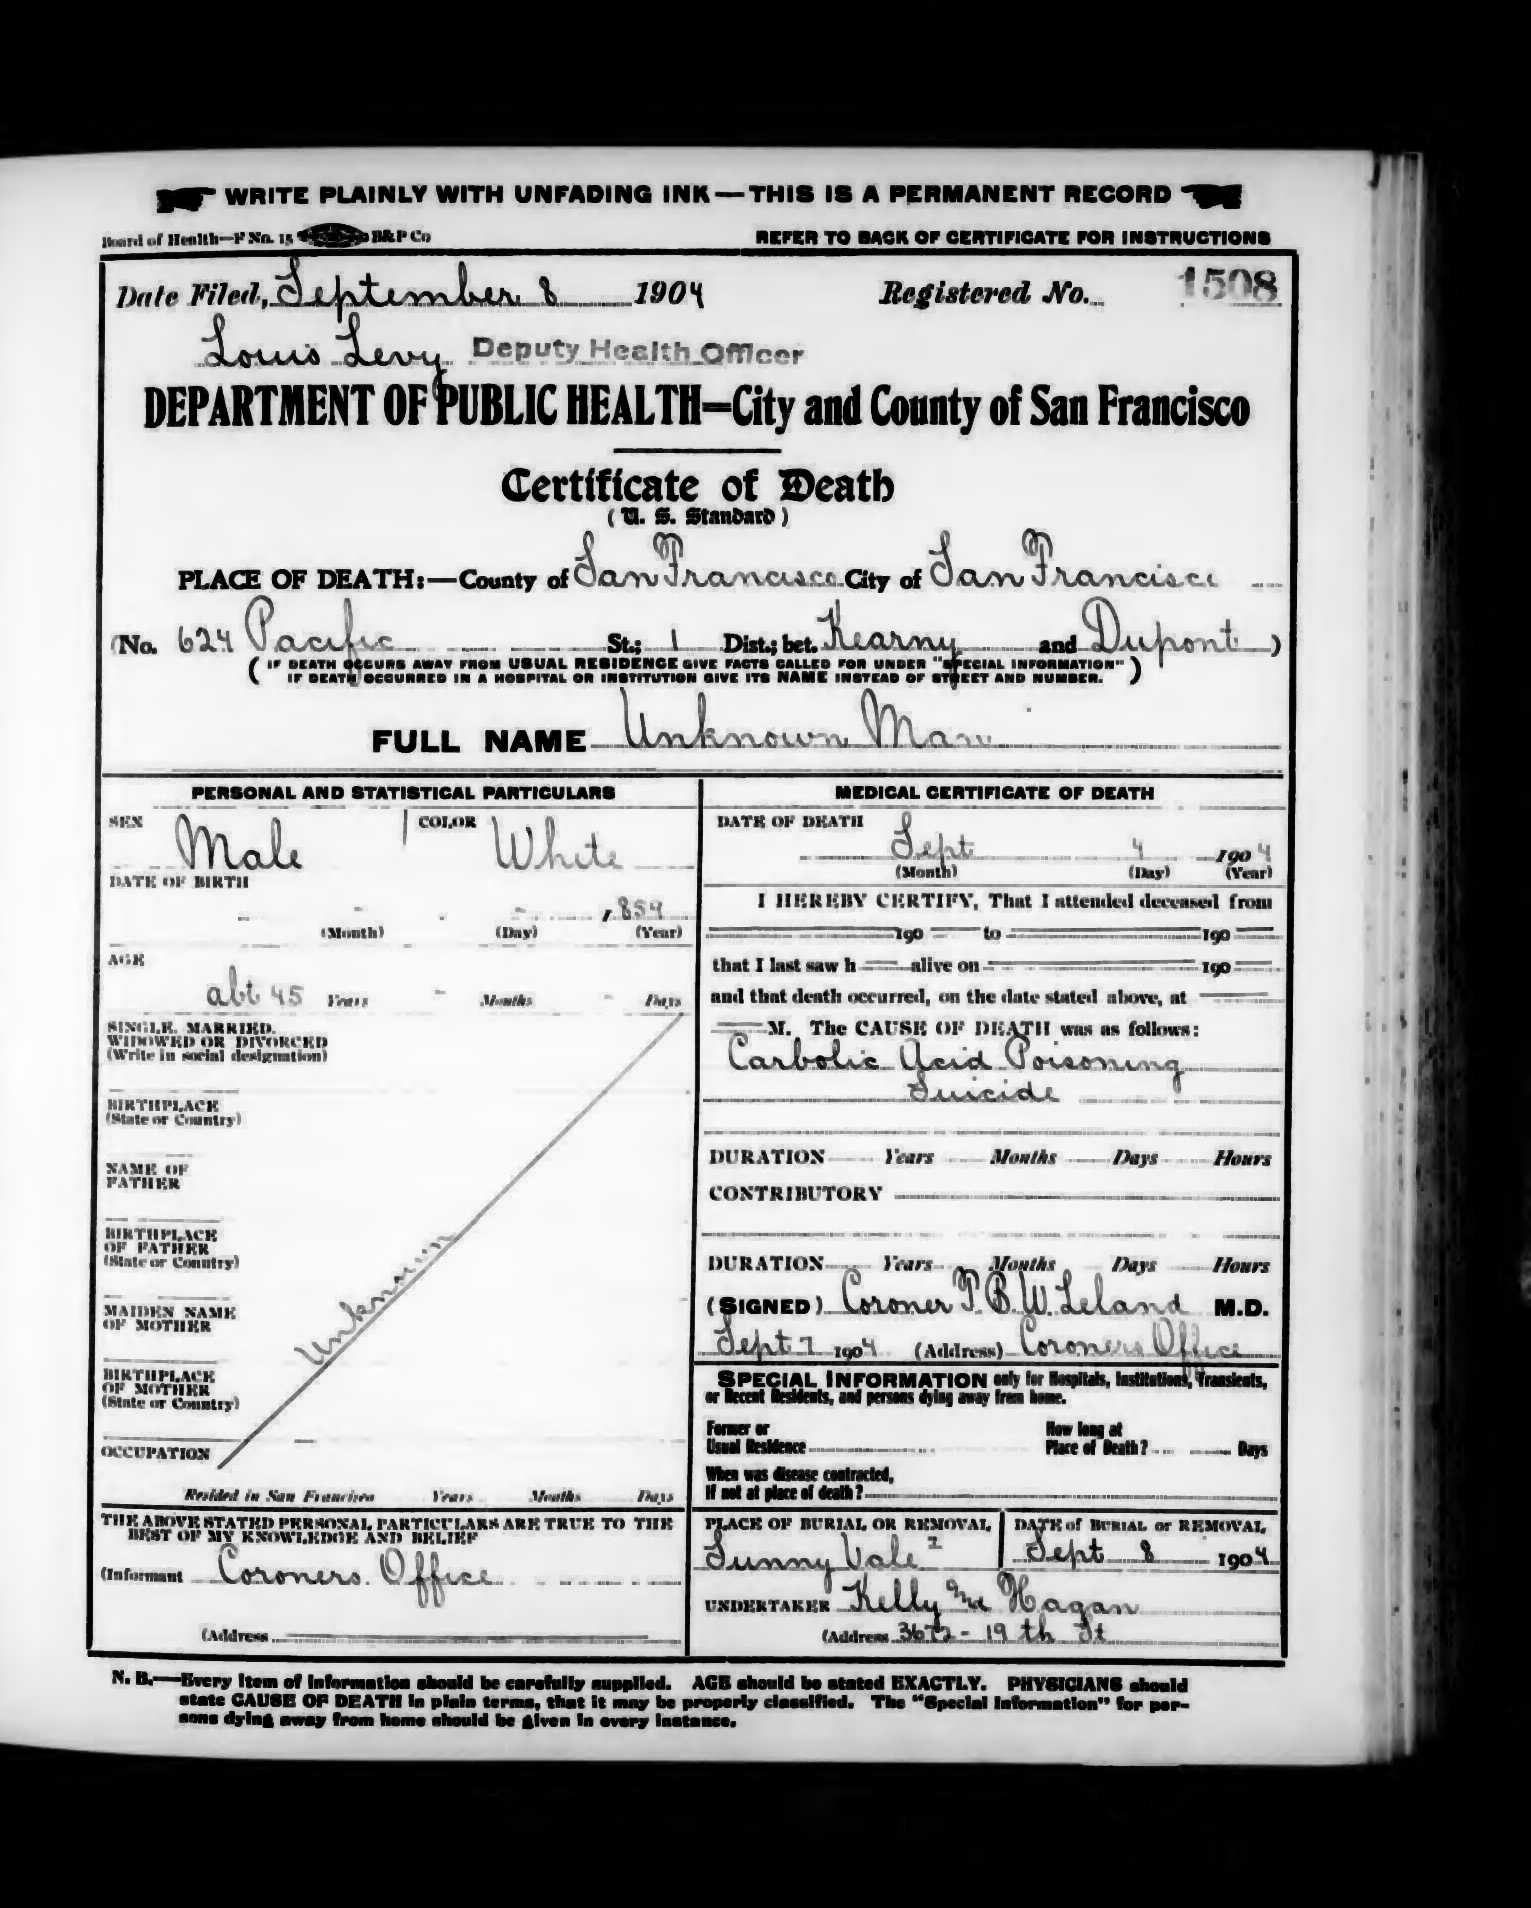 WRITE PLAINLY WITH UNFADING INK—THIS IS A PERMANENT RECORD
Board of Health—F No. 15 B&P Co REFER TO BACK OF CERTIFICATE FOR INSTRUCTIONS
Date Filed, September 8 1904 Registered No. 1508
Louis Levy Deputy Health Officer
DEPARTMENT OF PUBLIC HEALTH=City and County of San Francisco
Certificate of Death
( U. S. Standard )
PLACE OF DEATH:—County of San Francisco City of San Francisco
(No. 624 Pacific St.; 1 Dist.; bet. Kearny and Dupont )
( IF DEATH OCCURS AWAY FROM USUAL RESIDENCE GIVE FACTS CALLED FOR UNDER "SPECIAL INFORMATION" )
IF DEATH OCCURRED IN A HOSPITAL OR INSTITUTION GIVE ITS NAME INSTEAD OF STREET AND NUMBER.
FULL NAME Unknown Man
PERSONAL AND STATISTICAL PARTICULARS
SEX Male COLOR White
DATE OF BIRTH
, 859
(Month) (Day) (Year)
AGE
abt 45 Years - Months - Days
SINGLE, MARRIED,
WIDOWED OR DIVORCED
(Write in social designation)
BIRTHPLACE
(State or Country)
NAME OF
FATHER
BIRTHPLACE
OF FATHER
(State or Country)
Unknown
MAIDEN NAME
OF MOTHER
BIRTHPLACE
OF MOTHER
(State or Country)
OCCUPATION
Resided in San Francisco Years Months Days
THE ABOVE STATED PERSONAL PARTICULARS ARE TRUE TO THE
BEST OF MY KNOWLEDGE AND BELIEF
(Informant Coroners Office
(Address
MEDICAL CERTIFICATE OF DEATH
DATE OF DEATH
Sept 4 1904
(Month) (Day) (Year)
I HEREBY CERTIFY, That I attended deceased from
190 to 190
that I last saw h alive on 190
and that death occurred, on the date stated above, at
M. The CAUSE OF DEATH was as follows:
Carbolic Acid Poisoning
Suicide
DURATION Years Months Days Hours
CONTRIBUTORY
DURATION Years Months Days Hours
(SIGNED) Coroner T B W Leland M.D.
Sept 7 1904 (Address) Coroners Office
SPECIAL INFORMATION only for Hospitals, Institutions, Transients,
or Recent Residents, and persons dying away from home.
Former or How long at
Usual Residence Place of Death? Days
When was disease contracted,
If not at place of death?
PLACE OF BURIAL OR REMOVAL DATE of BURIAL or REMOVAL
Sunny Vale Sept 8 1904
UNDERTAKER Kelly and Hagan
(Address 3672 - 19 th St
N. B.—Every item of information should be carefully supplied. AGE should be stated EXACTLY. PHYSICIANS should
state CAUSE OF DEATH in plain terms, that it may be properly classified. The "Special Information" for per-
sons dying away from home should be given in every instance.